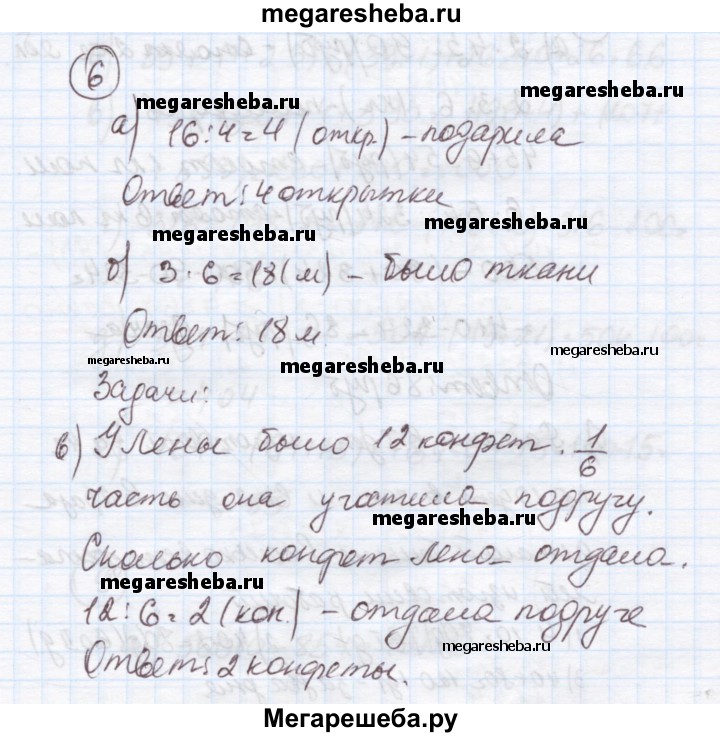 megaresheba.ru
6
megaresheba.ru megaresheba.ru
а) 16:4=4 (откр.) – подарила
Ответ: 4 открытки
megaresheba.ru megaresheba.ru
б) 3·6=18(м) – было ткани
Ответ: 18 м
megaresheba.ru megaresheba.ru
Задачи:
в) У Лены было 12 конфет. 1/6
часть она угостила подругу.
megaresheba.ru
Сколько конфет Лена отдала.
megaresheba.ru
12:6=2 (кон.) – отдала подруге
megaresheba.ru
Ответ: 2 конфеты.
Мегарешеба.ру